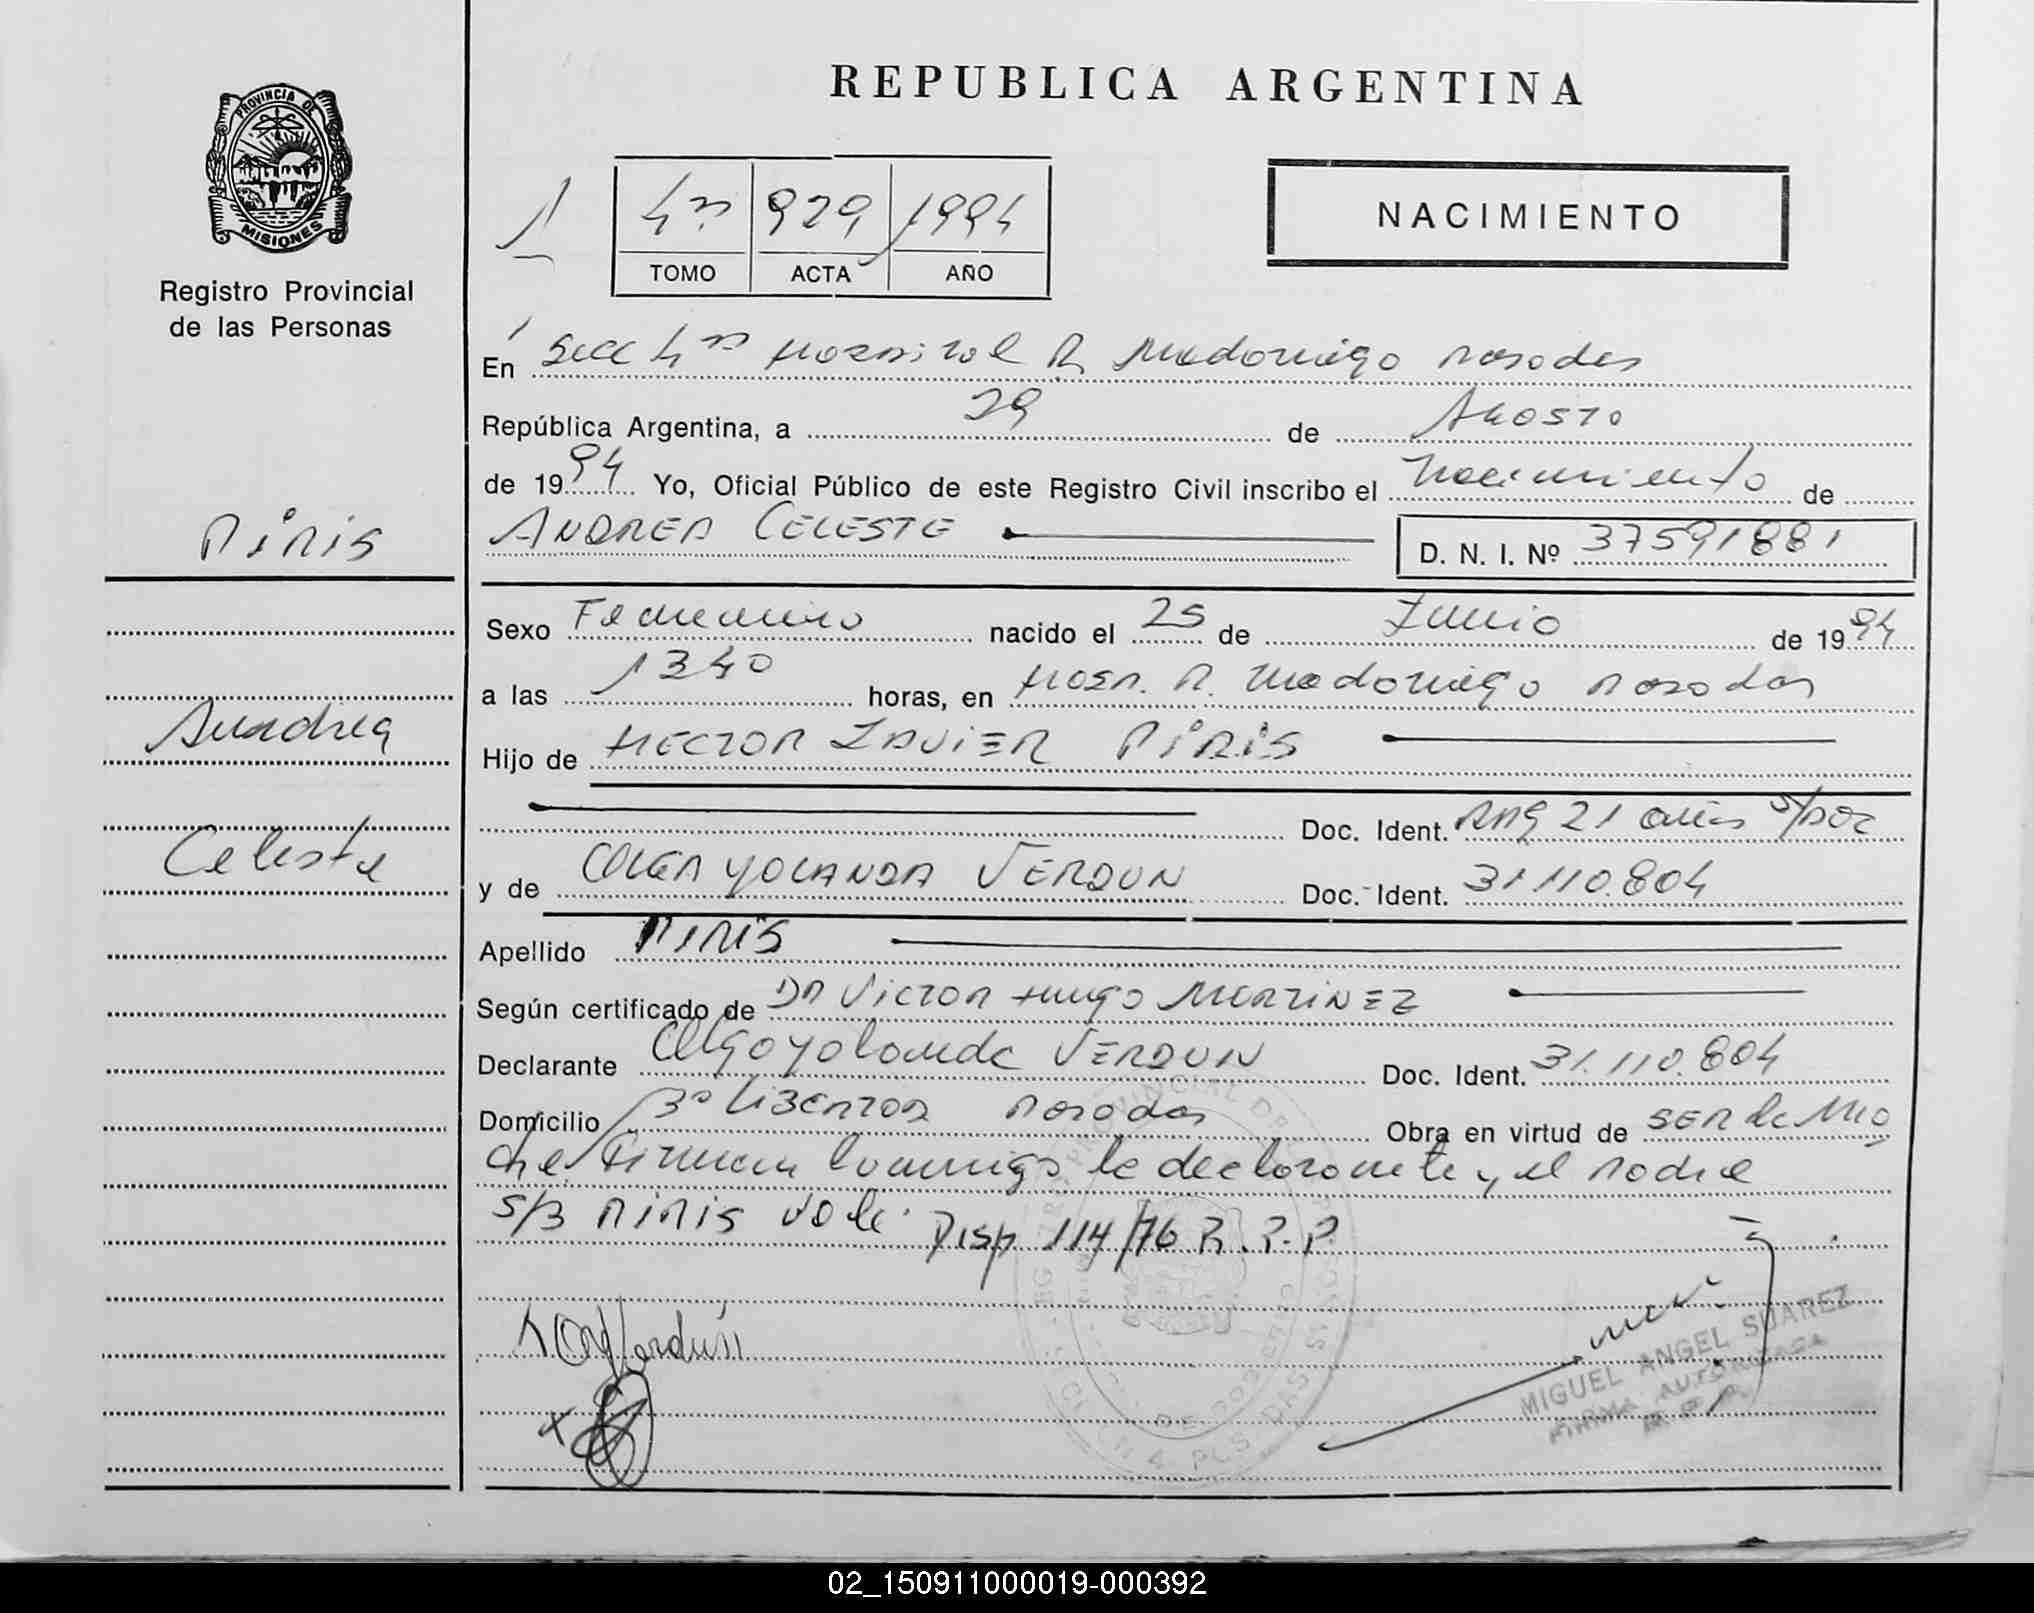 REPUBLICA ARGENTINA
PROVINCIA DE MISIONES
Registro Provincial
de las Personas
1
4ta 929 1994
TOMO ACTA AÑO
NACIMIENTO
En Secc 4ta Hospital R Madariaga Posadas
República Argentina, a 29 de Agosto
de 1994 Yo, Oficial Público de este Registro Civil inscribo el Nacimiento de
Piris
ANDREA CELESTE
D. N. I. Nº 37591881
Sexo Femenino nacido el 25 de Junio de 1994
a las 1340 horas, en Hosp. R. Madariaga Posadas
Andrea
Hijo de HECTOR JAVIER PIRIS
Doc. Ident. Arg 21 años s/doc
Celeste
y de OLGA YOLANDA VERDUN Doc. Ident. 31.110.804
Apellido PIRIS
Según certificado de DR VICTOR Hugo MARTINEZ
Declarante Olga Yolanda VERDUN Doc. Ident. 31.110.804
Domicilio Bº Libertad Posadas Obra en virtud de SER la Ma
dre Firman conmigo la declarante y el Padre
S/B PIRIS vale. Disp 114/76 R.P.P.
MIGUEL ANGEL SUAREZ
FIRMA AUTORIZADA
R.P.P.
02_150911000019-000392